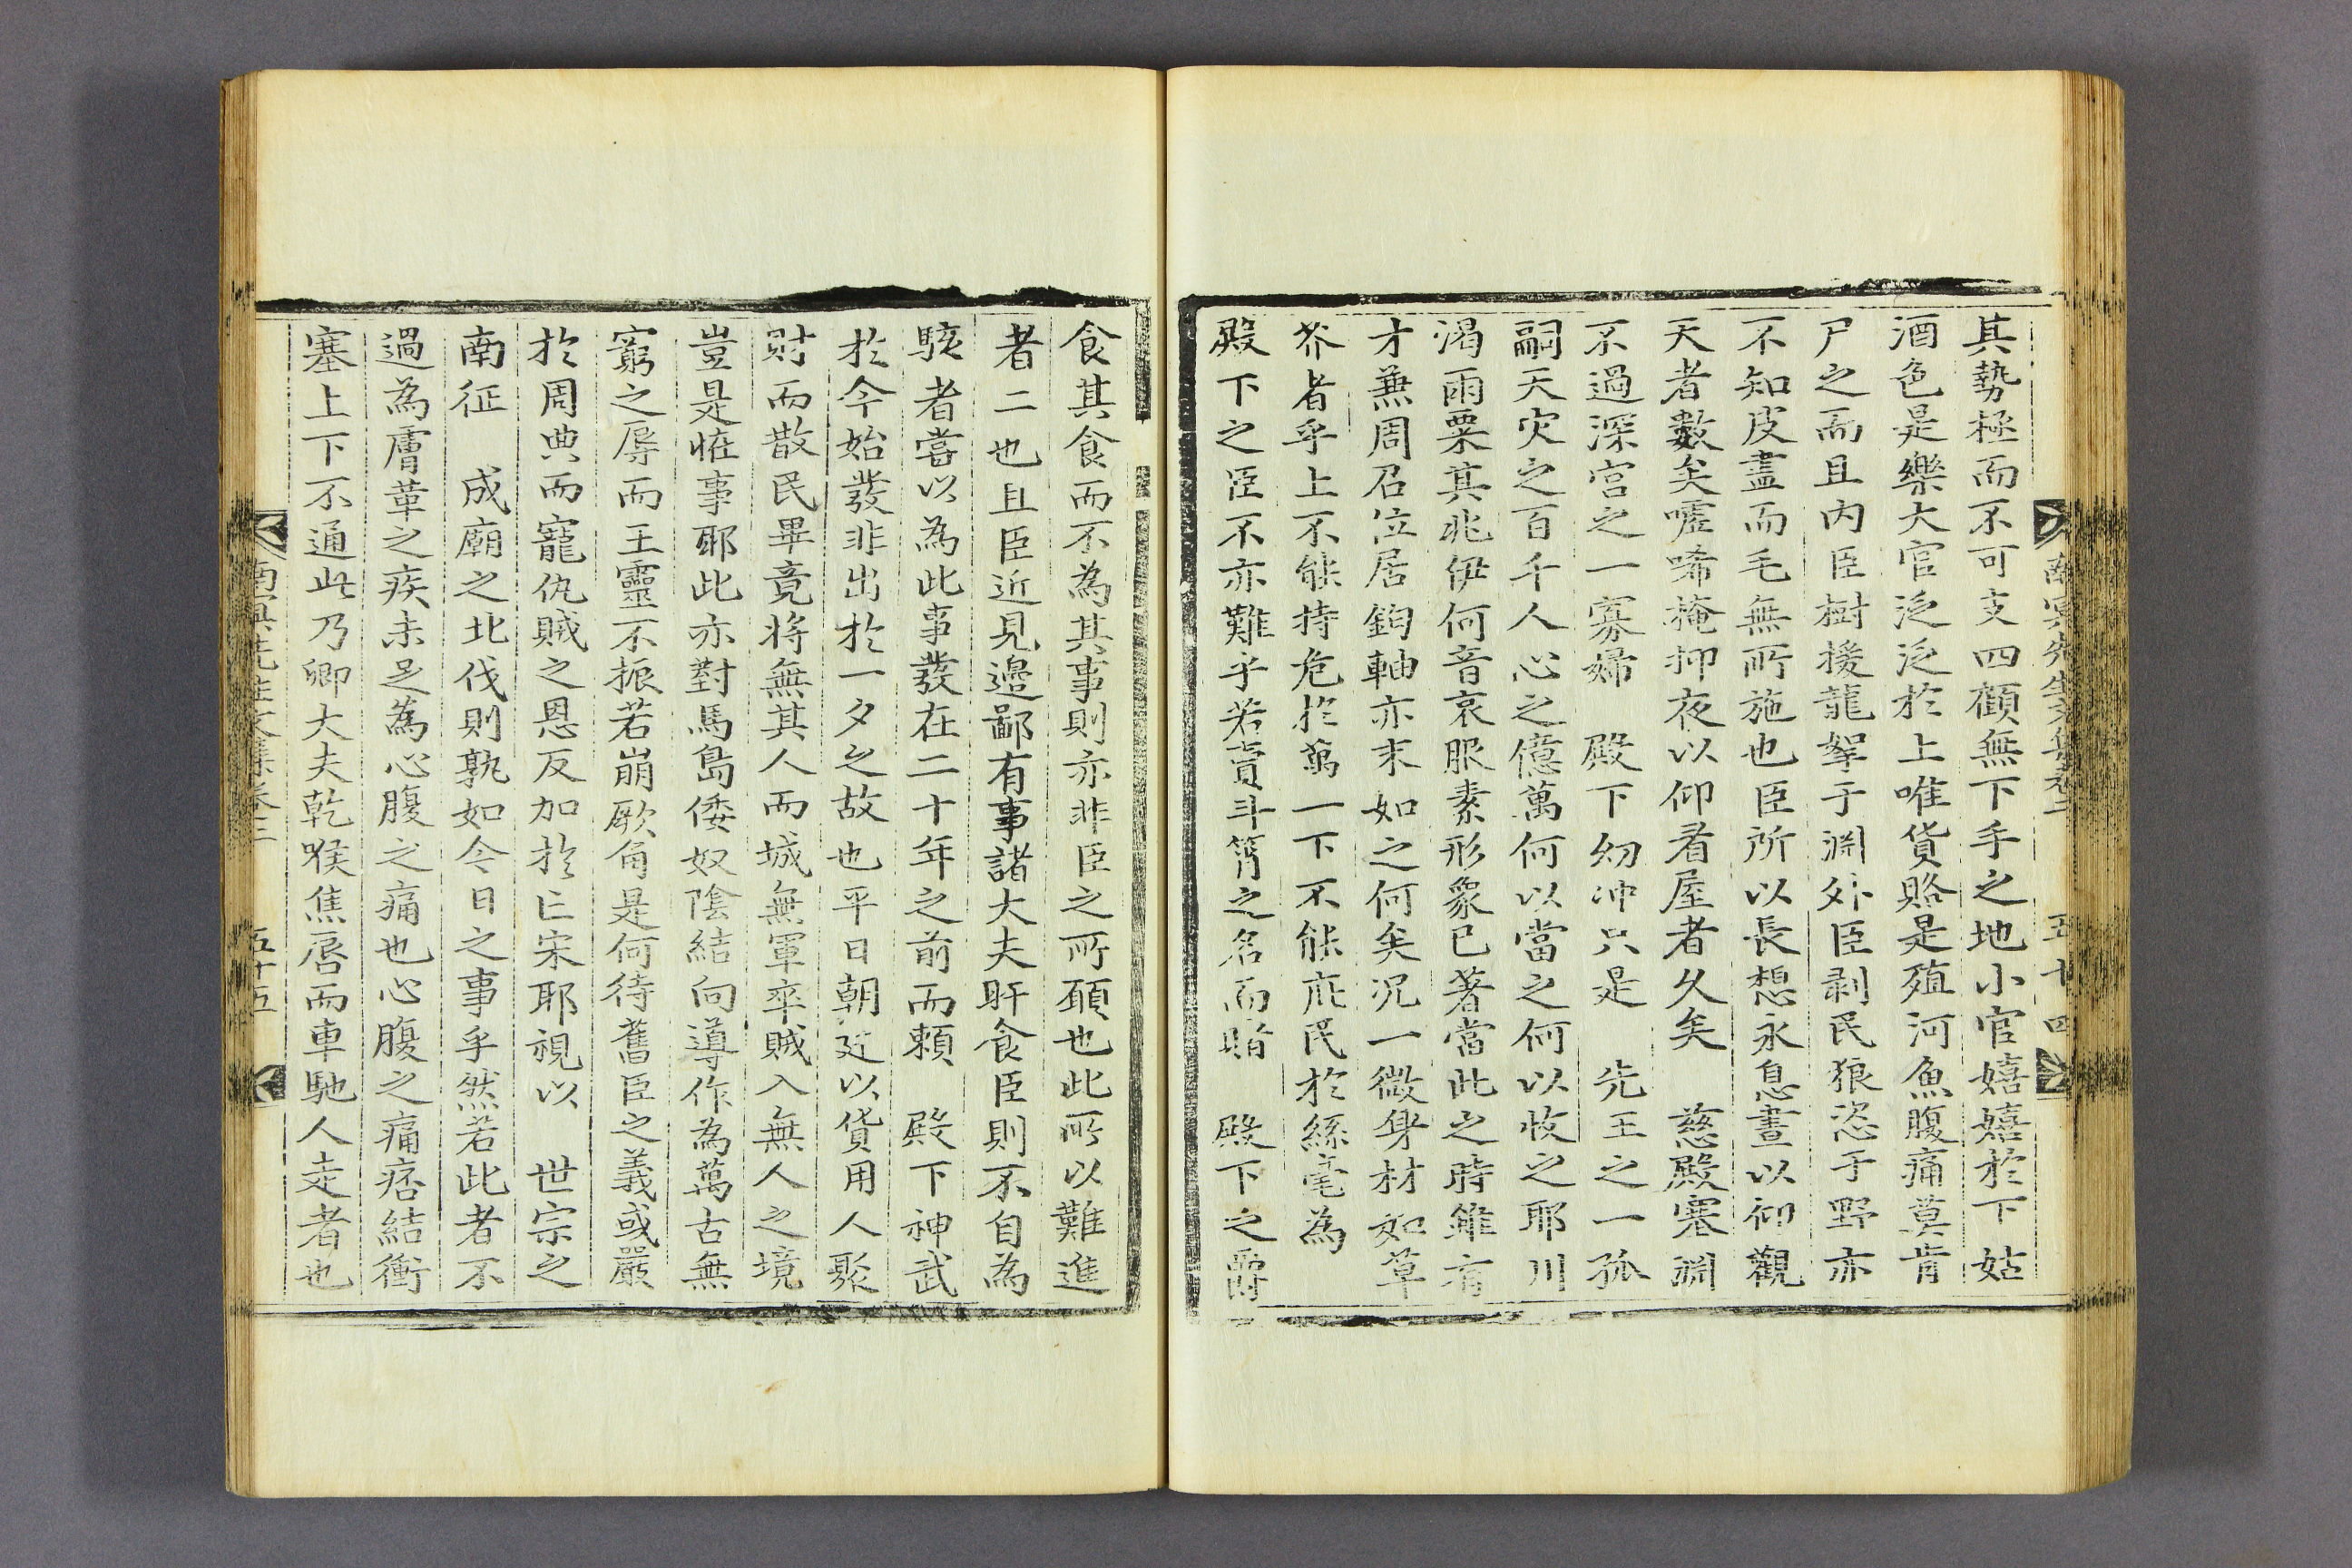 南冥先生文集卷二 五十四
其勢極而不可支四顧無下手之地小官嬉嬉於下姑
酒色是樂大官泛泛於上唯貨賂是殖河魚腹痛莫肯
尸之而且內臣樹援龍拏于淵外臣剥民狼恣于野亦
不知皮盡而毛無所施也臣所以長想永息晝以仰觀
天者數矣噓唏掩抑夜以仰看屋者久矣 慈殿塞淵
不過深宮之一寡婦 殿下幼冲只是 先王之一孤
嗣天灾之百千人心之億萬何以當之何以收之耶川
渴雨粟其兆伊何音哀服素形象已著當此之時雖有
才兼周召位居鈞軸亦末如之何矣况一微身材如草
芥者乎上不能持危於萬一下不能庇民於絲毫為
殿下之臣不亦難乎若賣斗筲之名而賭 殿下之爵
食其食而不為其事則亦非臣之所願也此所以難進
者二也且臣近見邊鄙有事諸大夫旰食臣則不自為
駭者嘗以為此事發在二十年之前而賴 殿下神武
於今始發非出於一夕之故也平日朝廷以貨用人聚
財而散民畢竟將無其人而城無軍卒賊入無人之境
豈是恠事耶此亦對馬島倭奴陰結向導作為萬古無
窮之辱而王靈不振若崩厥角是何待舊臣之義或嚴
於周典而寵仇賊之恩反加於亡宋耶視以 世宗之
南征 成廟之北伐則孰如今日之事乎然若此者不
過為膚革之疾未足為心腹之痛也心腹之痛痞結衝
塞上下不通此乃卿大夫乾喉焦唇而車馳人走者也
南冥先生文集卷二 五十五